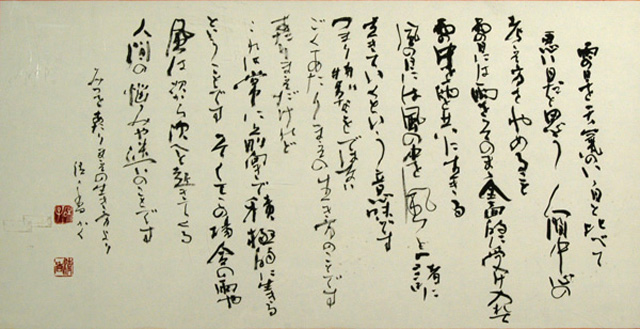 雨の日を天気のいい日と比べて
悪い日だと思う 人間中心の
考え方をやめること
雨の日には雨をそのまま全面的に受け入れて
雨の中を雨と共に生きる
風の日には風の中を風と一緒に
生きていくという意味です
つまり
ごくあたりまえの生き方のことです
あたりまえだけれど
これは常に前向きで積極的に生きる
ということです そしてこの場合の雨や
風は次から次へと起きてくる
人間の悩みや迷いのことです
みつを あたりまえの生き方より
かく